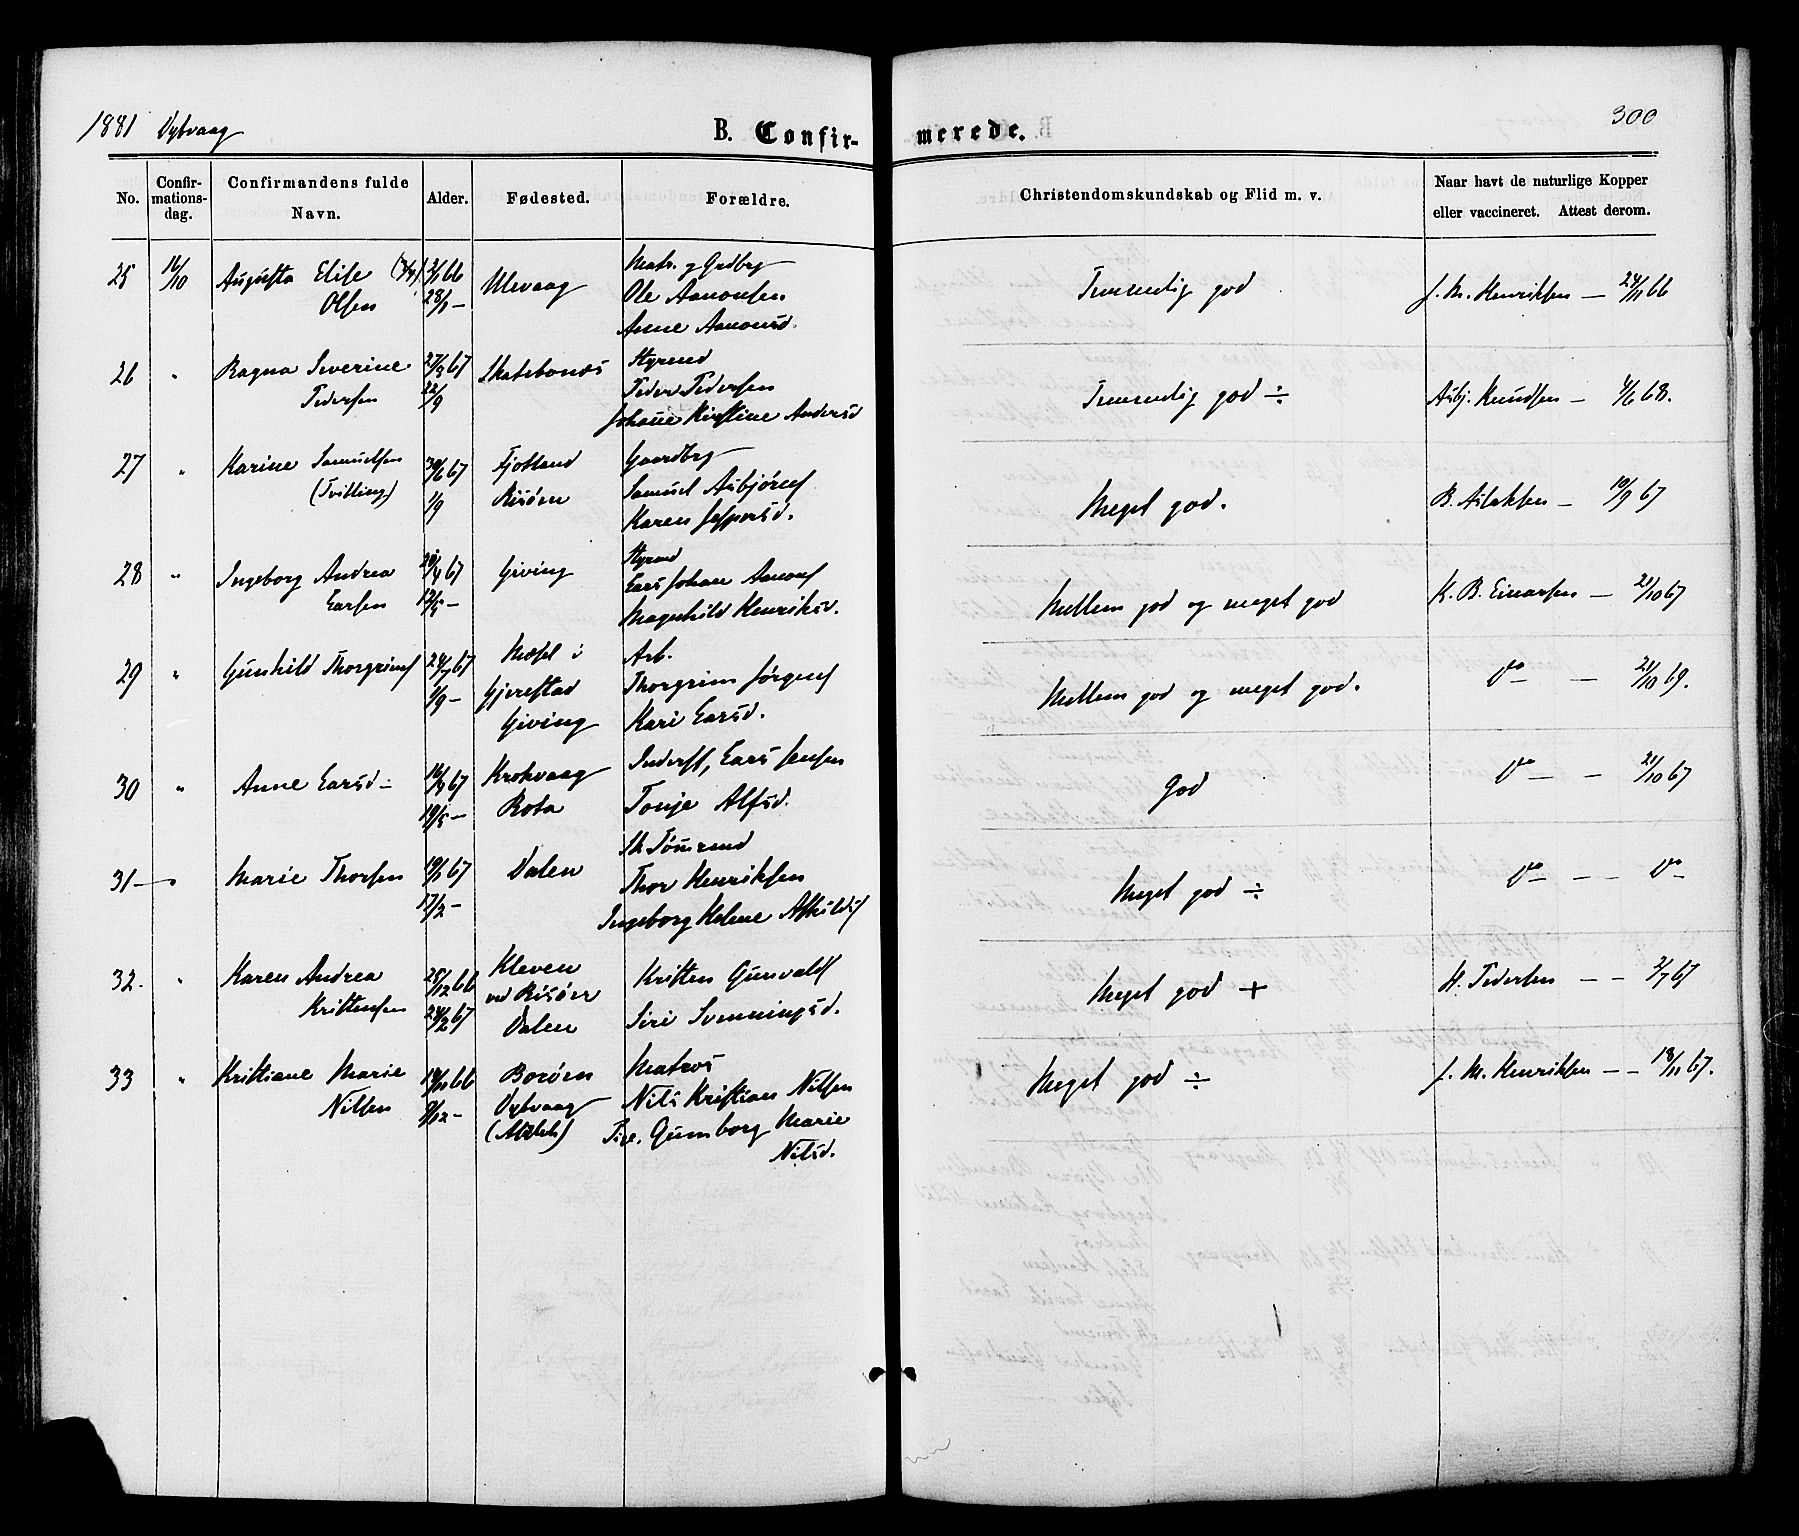 1881 Dybvaag
300
B. Confir-
merede.
No. Confir-mations-dag. Confirmandens fulde Navn. Alder. Fødested. Forældre. Christendomskundskab og Flid m. v. Naar havt de naturlige Kopper eller vaccineret. Attest derom.
25 16/10 Augusta Elise Ulevaag Matr. g Grdbrg Temmelig god J. M. Henriksen — 24/11 66
Olsen Ole Aanonsen
Anne Aanonsd.
26 " Ragna Severine 27/3 67 Skatebonæs Styrmd Temmelig god ÷ Asbj. Knudsen — 4/6 68.
Pedersen 22/9 Peder Pedersen
Johanne Kirstine Andersd
27 " Karine Samuelsen 30/6 67 Fjotland Gaardbr Meget god. B. Aslaksen — 10/9 67
(Tvilling) 1/9 Risøen Samuel Asbjørns
Karen Jespersd.
28 " Ingeborg Andrea Giving Styrmd Mellem god og meget god K. B. Einarsen — 21/10 67
Larsen 12/5 — Lars Johan Aanons
Magnhild Henriksd.
29 " Gunhild Thorgrims 24/7 67 Mæsel i Arb. Mellem god og meget god. Do — — 21/10 69.
1/9 — Gjerestad Thorgrim Jørgens
Giving Kari Larsd.
30 " Anne Larsd — Krokvaag Inderst, Lars Jensen God Do — — 21/10 67
19/5 — Rota Tonje Alfsd.
31 — " Marie Thorsen 19/1 67 Dalen Sk Tømrmd Meget god ÷ Do — — — Do —
17/2 — Thor Henriksen
Ingeborg Helene
32. " Karen Andrea 25/12 66 Kleven Kristen Gunvalds Meget god + H. Pedersen — — 2/7 67
Kristensen 24/2 67 ved Risøer Siri Svenningsd.
Dalen
33 " Kristiane Marie 19/11 66 Borøen Matros Meget god ÷ J. M. Henriksen — — 18/11 67.
Nilsen 9/12 — Dybvaag Nils Kristian Nilsen
Gunborg Marie
Nilsd.